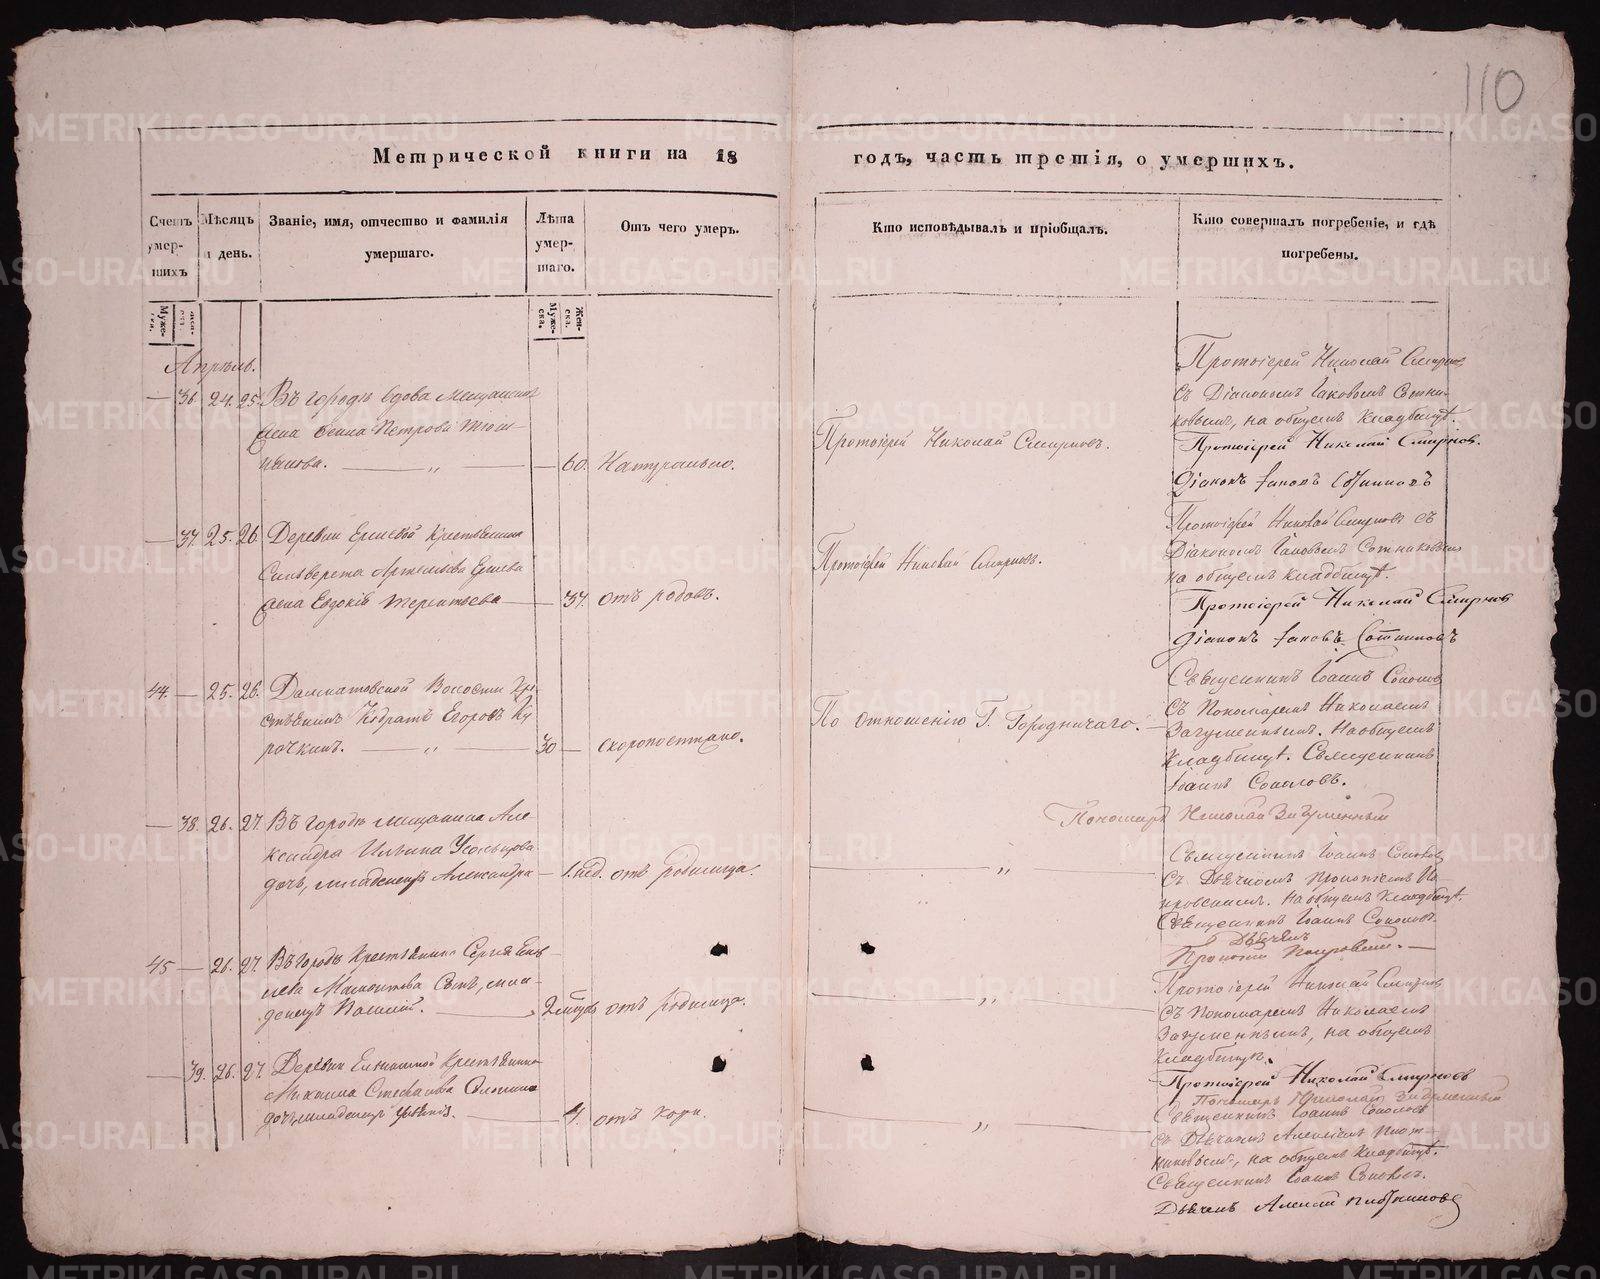 110
Метрической книги на 18 годъ, часть третія, о умершихъ.
Счетъ умер-шихъ
Мѣсяцъ и день.
Званіе, имя, отчество и фамилія умершаго.
Лѣта умер-шаго.
Отъ чего умеръ.
Кто исповѣдывалъ и пріобщалъ.
Кто совершалъ погребеніе, и гдѣ погребены.
Муже-ски.
Муже-ска.
Жен-ска.
Апрѣль.
— 36 24. 25. Въ городѣ вдова Мещанская
жена Петрова
60. Натурально.
Протоіерей Николай Смирновъ.
Протоіерей Николай Смирновъ
съ Діакономъ Іаковомъ Сотни-
ковымъ, на общемъ кладбищѣ.
Протоіерей Николай Смирновъ.
Діаконъ Іаковъ Сотниковъ
— 37. 25. 26. Деревни Крестьянина
Сильверста Артемьева
жена Евдокія Терентьева — 37. отъ родовъ.
Протоіерей Николай Смирновъ.
Протоіерей Николай Смирновъ съ
Діакономъ Іаковомъ Сотниковымъ
на общемъ кладбищѣ.
Протоіерей Николай Смирновъ
Діаконъ Іаковъ Сотниковъ
44. — 25. 26. Далматовской Волости Кре-
стьянинъ Кодратъ Егоровъ Ку
рочкинъ. 30 — скоропостижно.
По отношенію Г. Городничаго.
Священникъ Іоаннъ Соколовъ
съ Пономаремъ Николаемъ
Загуменнымъ. На общемъ
кладбищѣ. Священникъ
Іоаннъ Соколовъ.
Пономарь Николай Загуменный
— 38. 26. 27. Въ городѣ мещанина Але-
ксандра Ильина Усольцова
дочь, младенецъ Александра — 1. нед. отъ родимца.
Священникъ Іоаннъ Соколовъ
съ Дьячкомъ Прокопіемъ По-
кровскимъ. На общемъ кладбищѣ.
Священникъ Іоаннъ Соколовъ.
Дьячекъ
Прокопій Покровскій.
45 — 26. 27. Въ городѣ Крестьянина Сергія
Мамонтова Сынъ, мла-
денецъ
2 мѣсяц отъ родимца.
Протоіерей Николай Смирновъ
съ Пономаремъ Николаемъ
Загуменнымъ, на общемъ
кладбищѣ.
Протоіерей Николай Смирновъ
Пономарь Николай Загуменный
— 39. 26. 27. Деревни Крестьянина
Михаила Стефанова
дочь младенецъ
4. отъ кори.
Священникъ Іоаннъ Соколовъ
съ Дьячкомъ Алексіемъ Плот-
никовымъ, на общемъ кладбищѣ.
Священникъ Іоаннъ Соколовъ.
Дьячекъ Алексій Плотниковъ